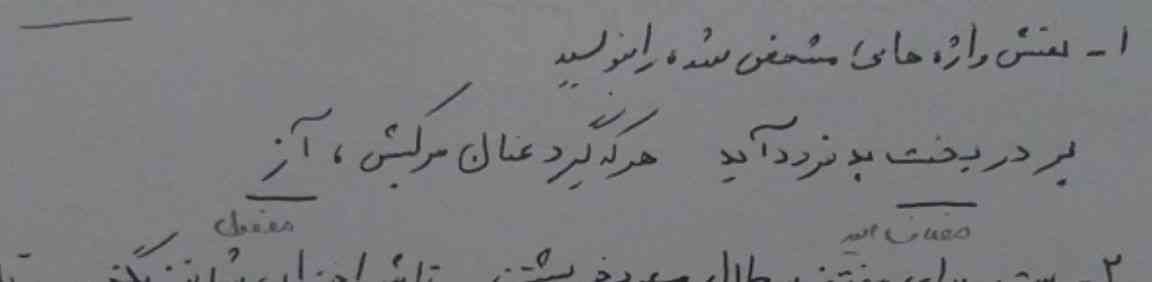 ۱- نقش واژه های مشخص شده را بنویسید
بر در بخت بد فرود آید هر که گیرد عنان مرکبش، آز
مضاف الیه مفعول
۲-